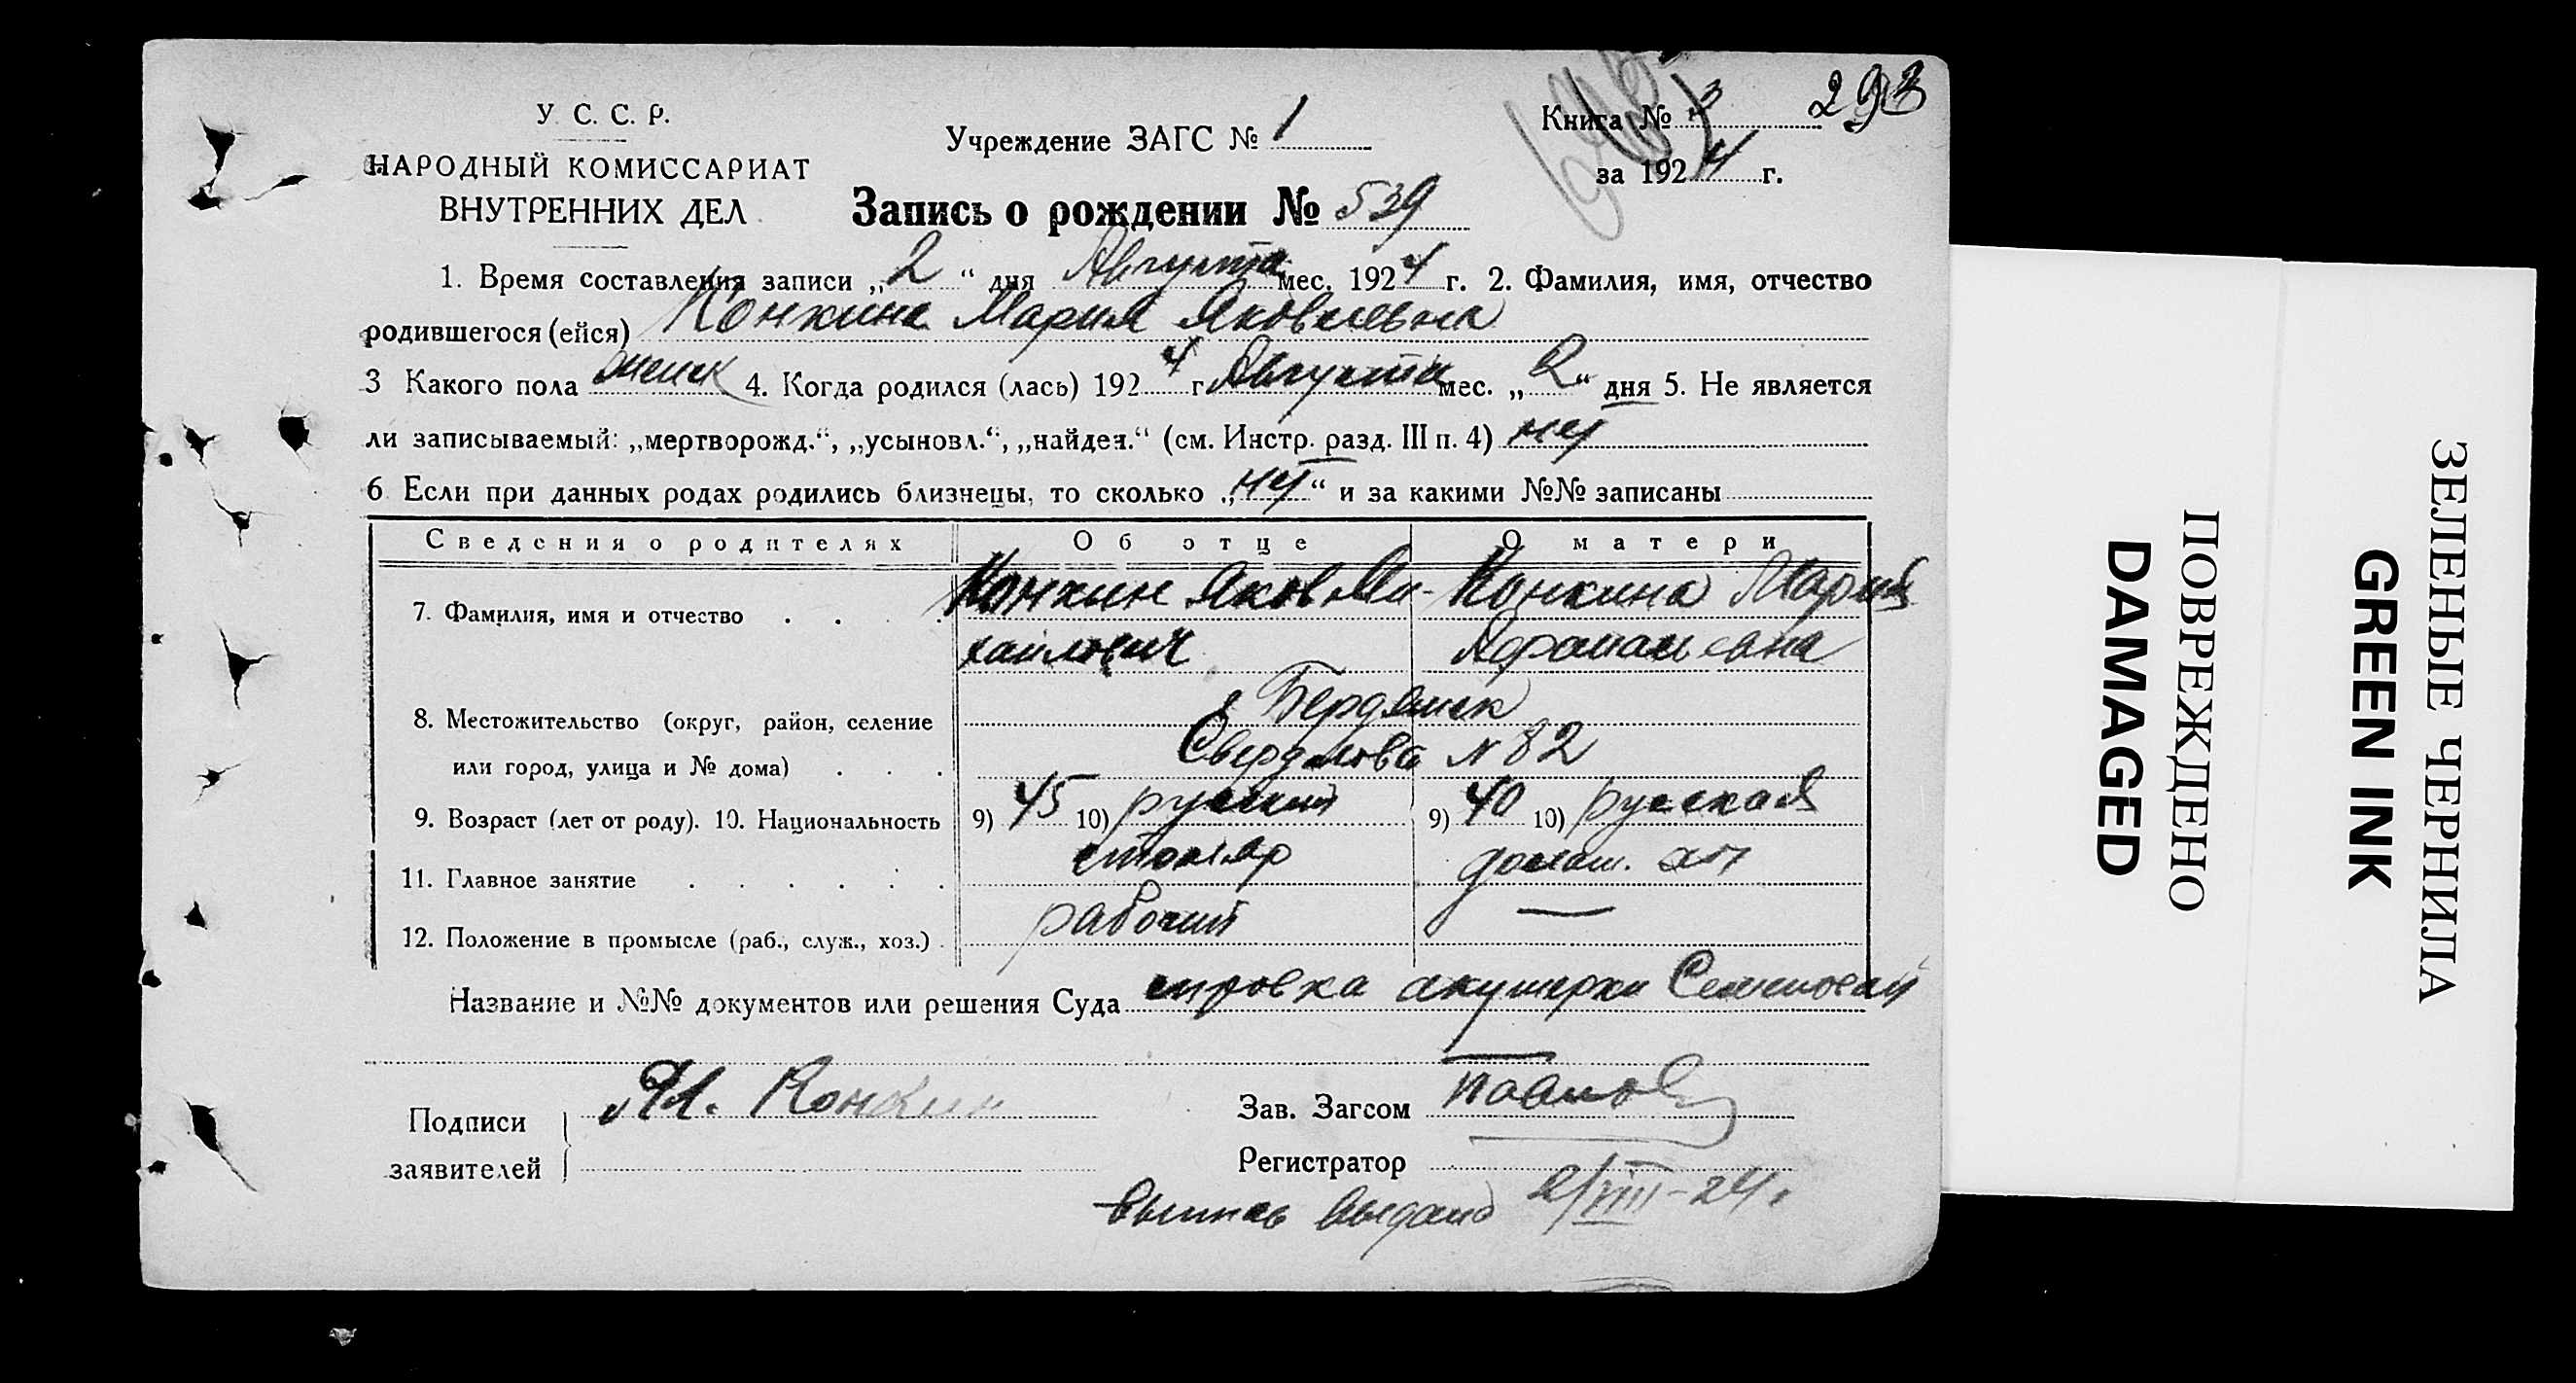 У. С. С. Р.
НАРОДНЫЙ КОМИССАРИАТ
ВНУТРЕННИХ ДЕЛ
Учреждение ЗАГС № 1
Книга № 3
293
за 1924 г.
Запись о рождении № 539
1. Время составления записи „2“ дня Августа мес. 1924 г. 2. Фамилия, имя, отчество
родившегося (ейся) Конкина Мария Яковлевна
3 Какого пола женск 4. Когда родился (лась) 1924 г Августа мес. „2“ дня 5. Не является
ли записываемый: „мертворожд.“, „усыновл.“, „найден.“ (см. Инстр. разд. III п. 4) нет
6 Если при данных родах родились близнецы, то сколько „нет“ и за какими №№ записаны
Сведения о родителях Об отце О матери
7. Фамилия, имя и отчество . . . . Конкин Яков Ми- Конкина Мария
хайлович Афанасьевна
8. Местожительство (округ, район, селение Бердянск
или город, улица и № дома) . . . Свердлова N 82
9. Возраст (лет от роду). 10. Национальность 9) 45 10) русский 9) 40 10) русская
11. Главное занятие . . . . . . столяр домаш. хоз
12. Положение в промысле (раб., служ., хоз.) . рабочий —
Название и №№ документов или решения Суда справка акушерки Семеновой
Подписи
заявителей
Я. Конкин
Зав. Загсом Павлов
Регистратор
Выпись выдана 2/VIII-24 г.
ПОВРЕЖДЕНО
DAMAGED
ЗЕЛЕНЫЕ ЧЕРНИЛА
GREEN INK